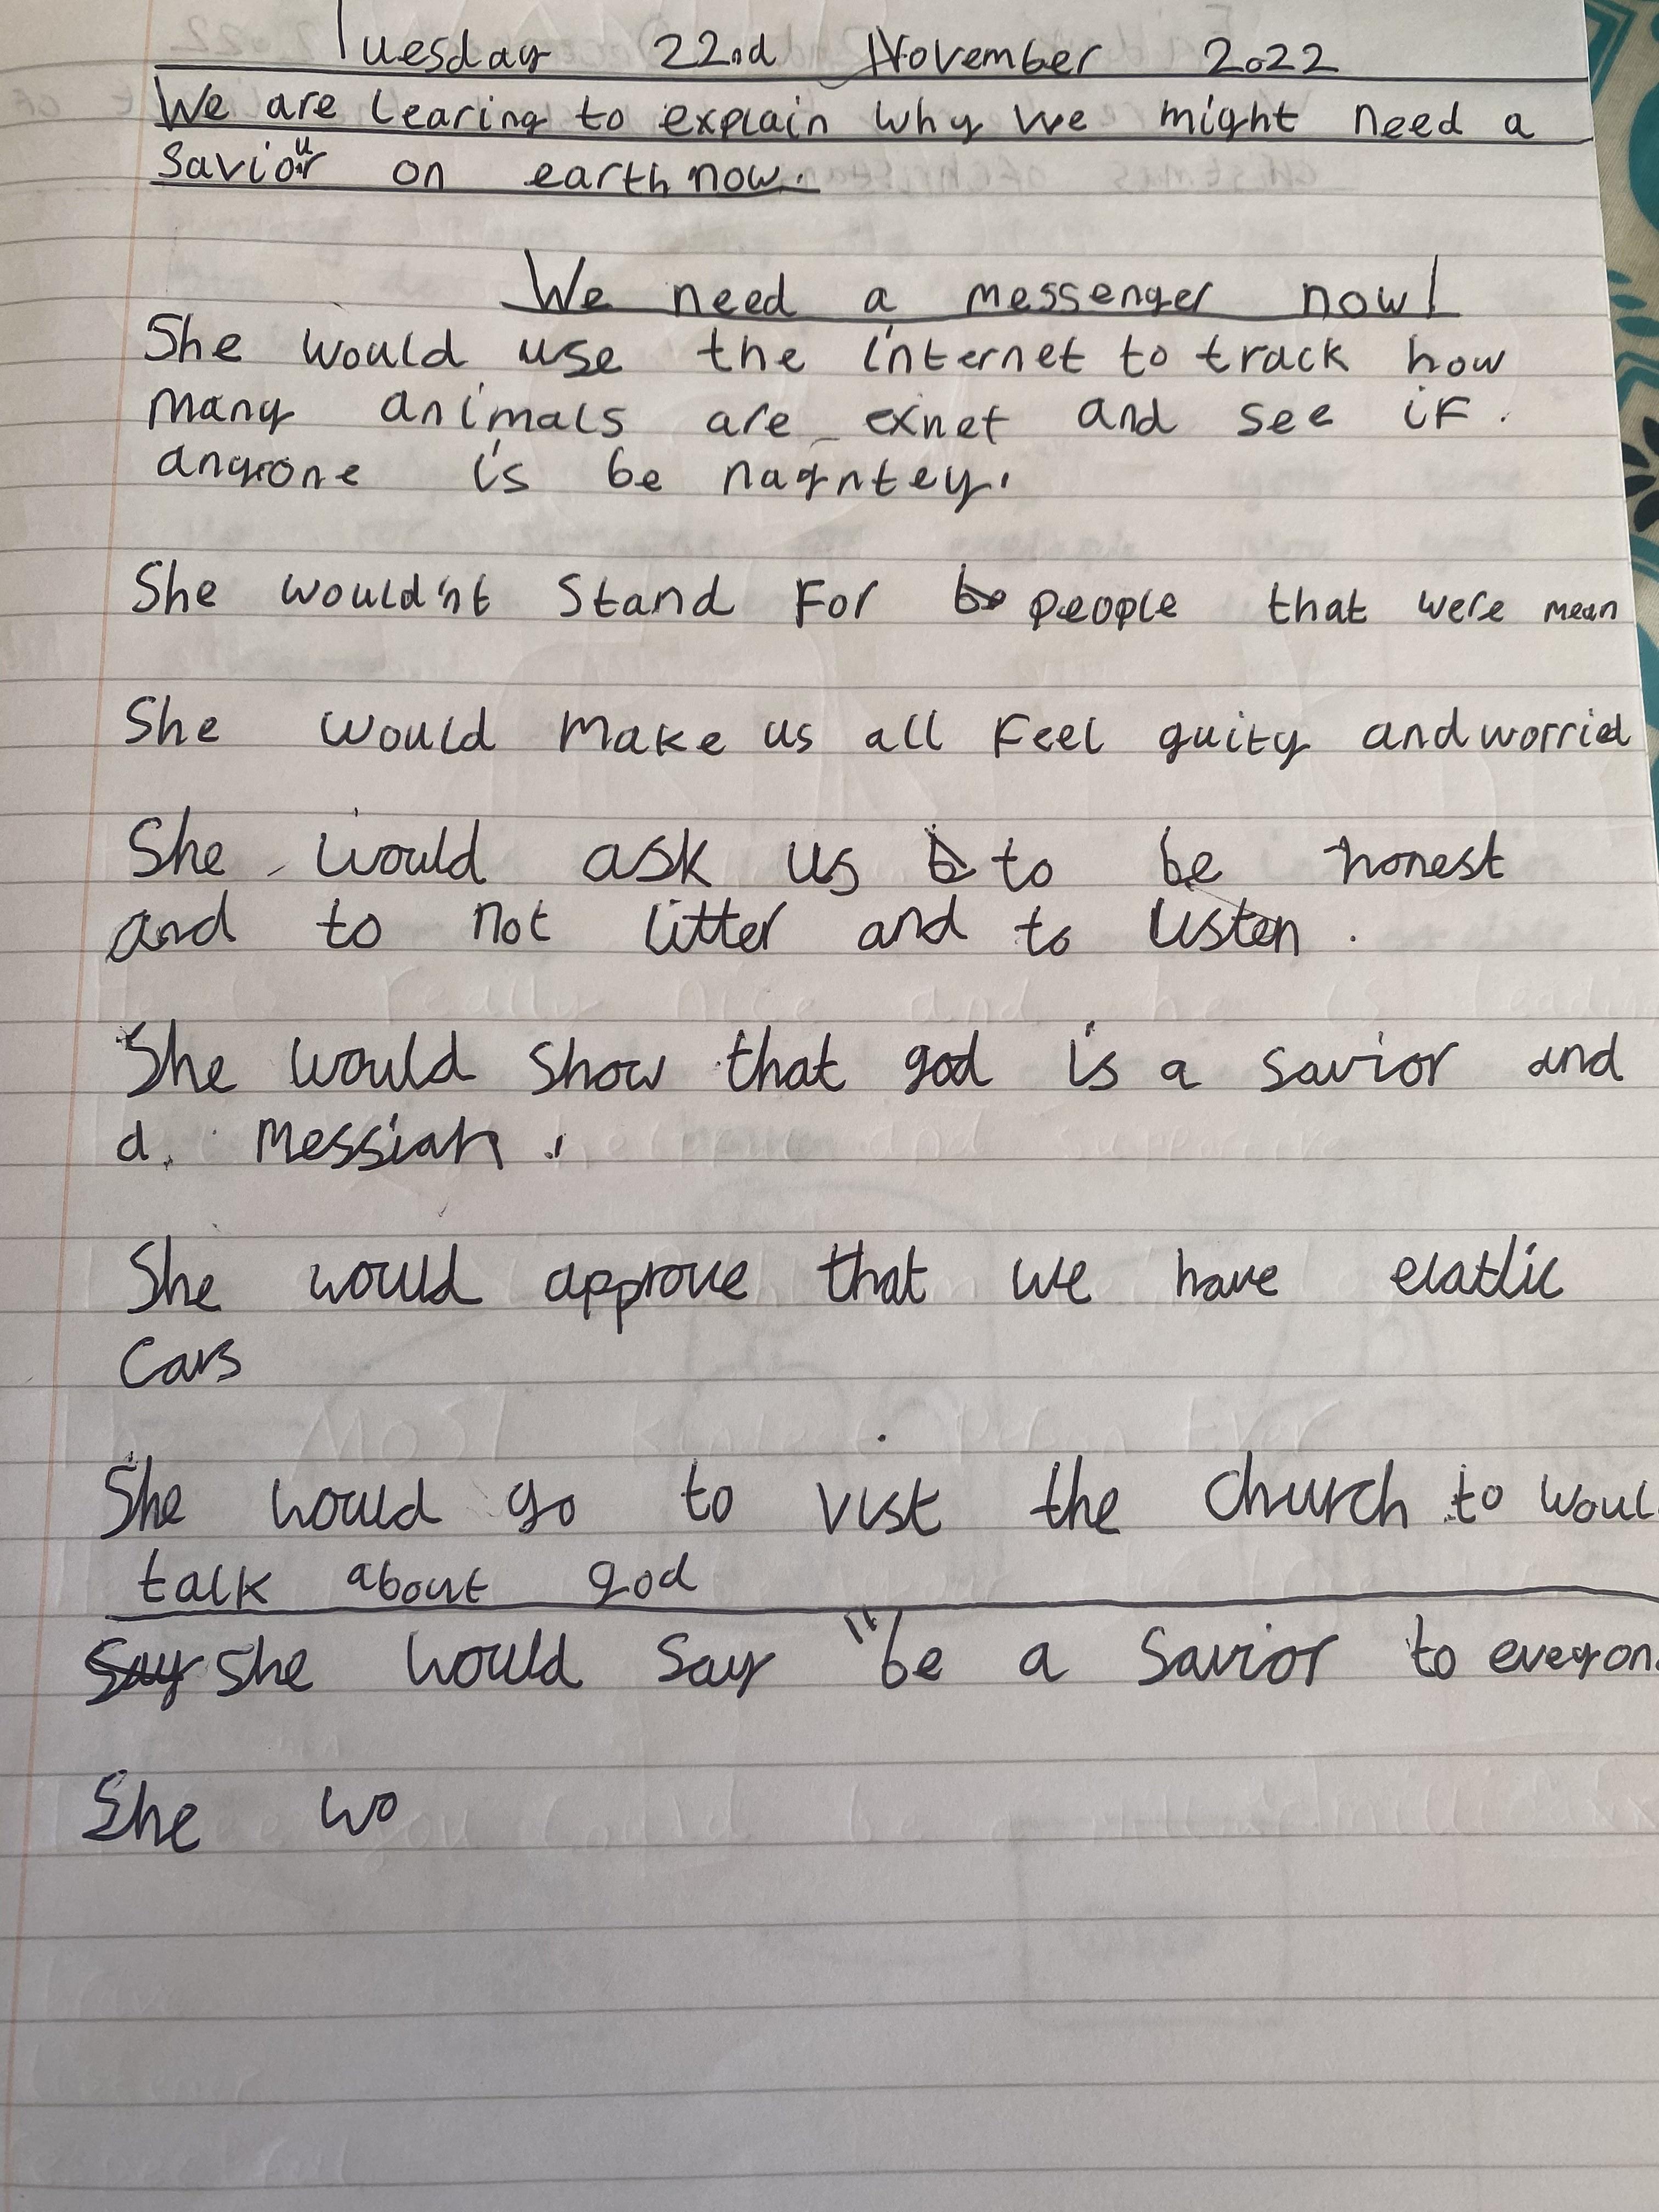 Tuesday 22nd November 2022
We are learing to explain why we might need a
Saviour on earth now.
We need a messenger now!
She would use the internet to track how
many animals are exnet and see if
anyone is be nagntey.
She would'nt stand for people that were mean
She would make us all feel guity and worried
She would ask us to be honest
and to not litter and to listen.
She would show that god is a savior and
a Messiah.
She would approve that we have elatlic
Cars
She would go to vist the church to woul
talk about god
She would say "be a savior to everyon
She wo